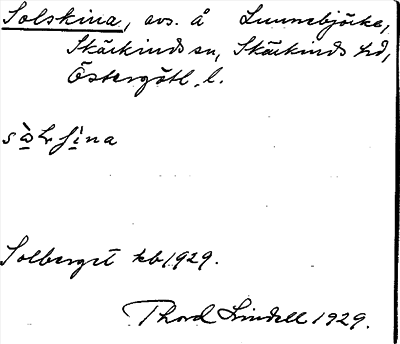 Solskina, avs. å Lunnebjörke,
Skärkinds sn, Skärkinds hd,
Östergötl. l.
Solberget kb 1929.
Thord Lindell 1929.